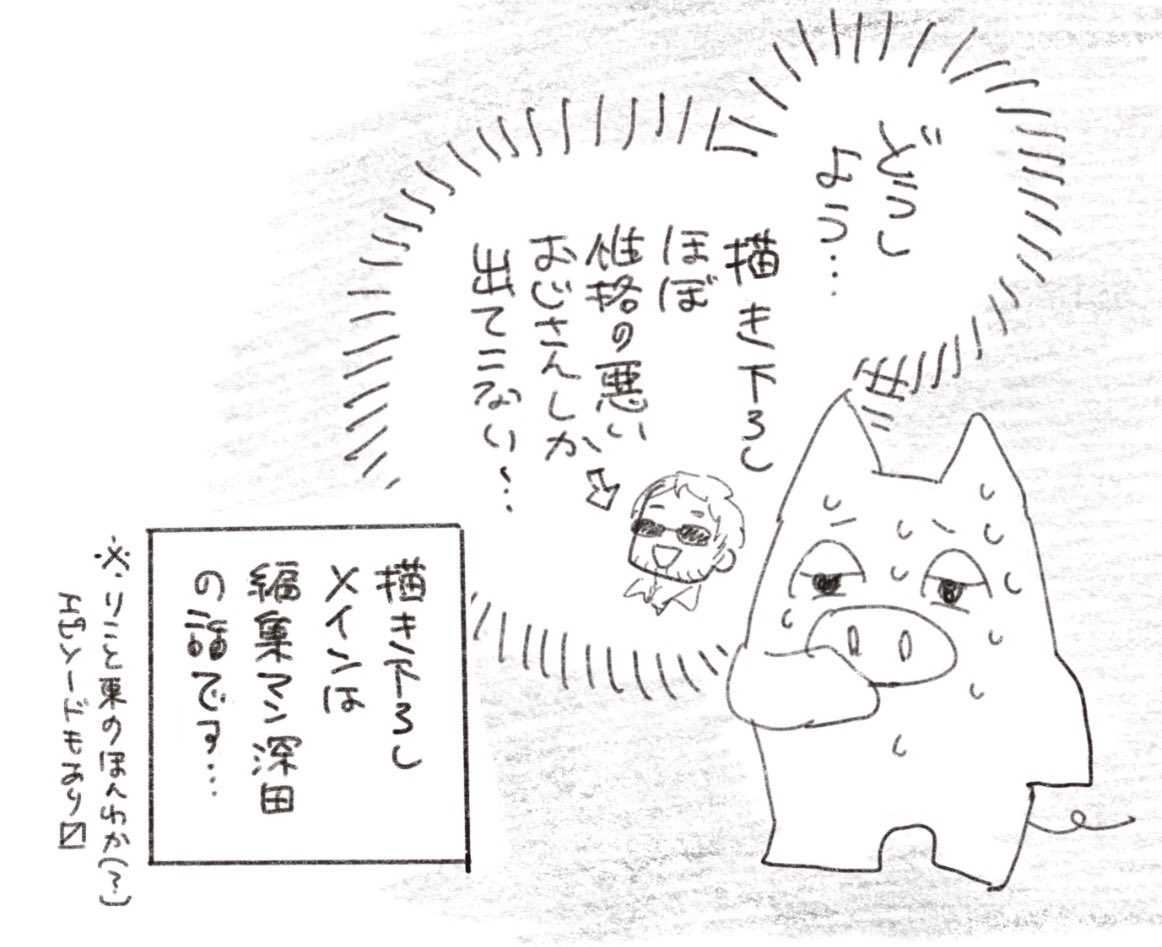 どうし
よう…
描き下ろし
ほぼ
性格の悪い
おじさんしか
出てこない〜…
描き下ろし
メインは
編集マン深田
の話です…
※りこと東のほんわか(?)
エピソードもあり〼